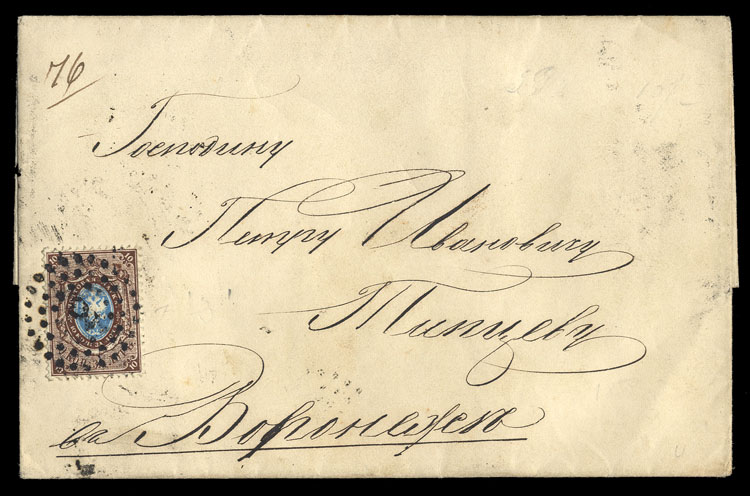 76
Господину
Петру Ивановичу
Типцеву
въ Воронежѣ
10 10
10 10